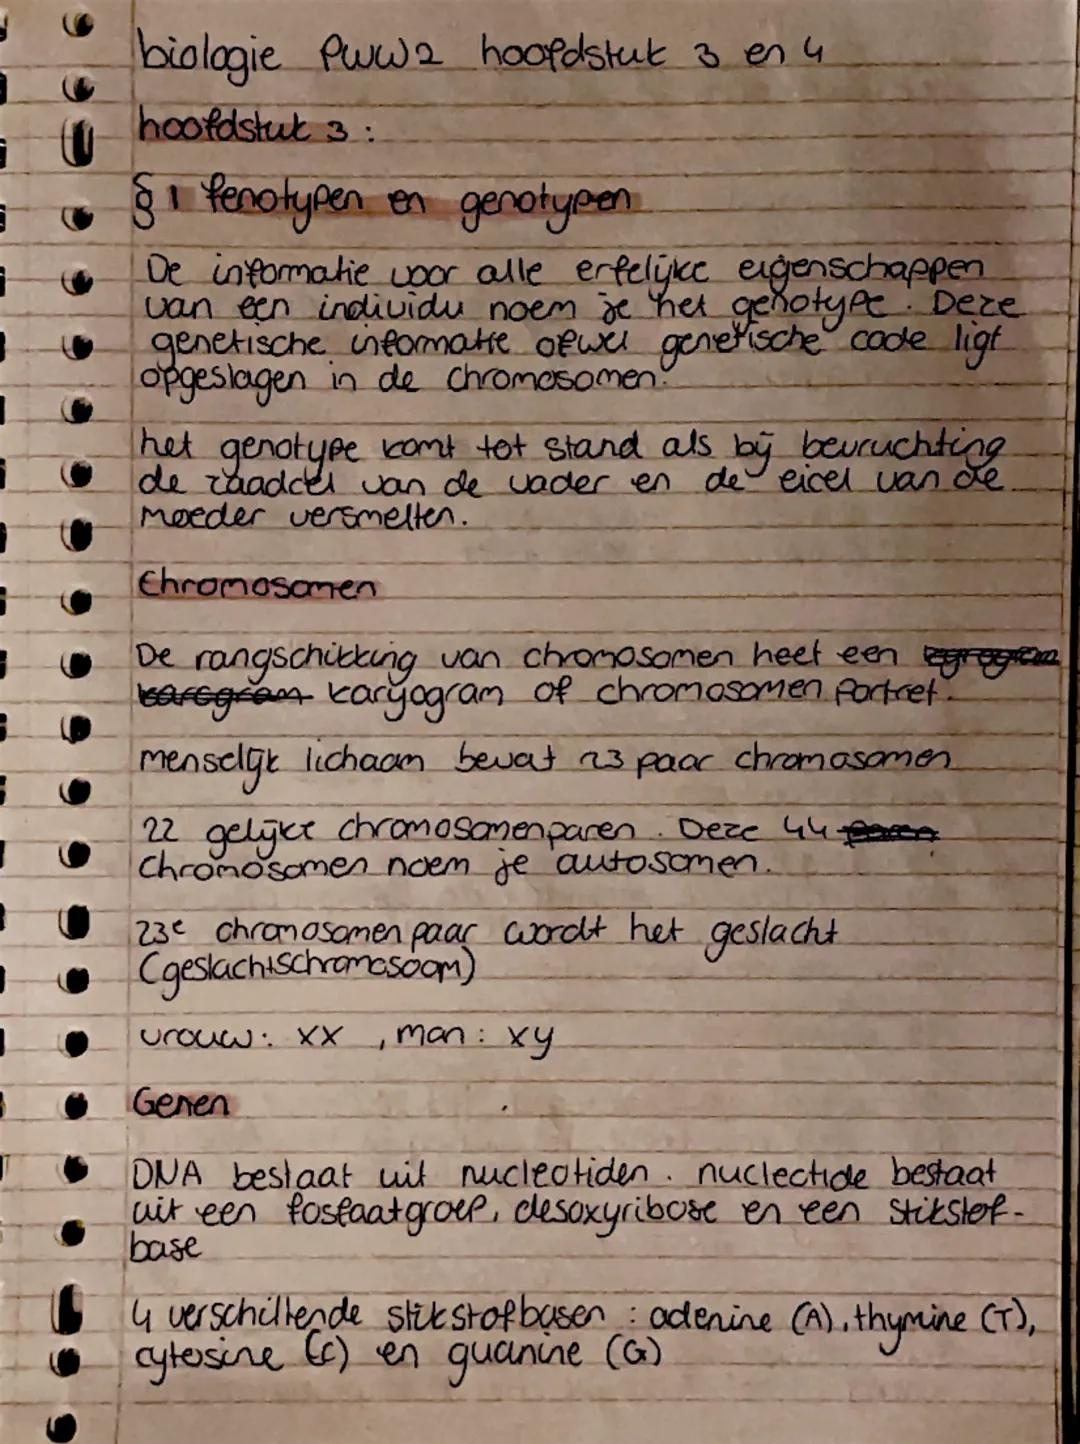 biologie PWW2 hoofdstuk 3 en 4
hoofdstuk 3:
§1 fenotypen en genotypen
De informatie voor alle erfelijke eigenschappen
van een individu noem je het genotype. Deze
genetische informatie ofwel genetische code ligt
opgeslagen in de chromosomen.
het genotype komt tot stand als bij bevruchting
de zaadcel van de vader en de eicel van de
moeder versmelten.
Chromosomen
De rangschikking van chromosomen heet een
karyogram of chromosomen portret.
menselijk lichaam bevat 23 paar chromosomen
22 gelijke chromosomenparen. Deze 44 paren
chromosomen noem je autosomen.
23e chromosomenpaar wordt het geslacht
(geslachtschromosoom)
vrouw: xx , man: xy
Genen
DNA bestaat uit nucleotiden. nucleotide bestaat
uit een fosfaatgroep, desoxyribose en een stikstof-
base
4 verschillende stikstofbasen: adenine (A), thymine (T),
cytosine (C) en guanine (G)